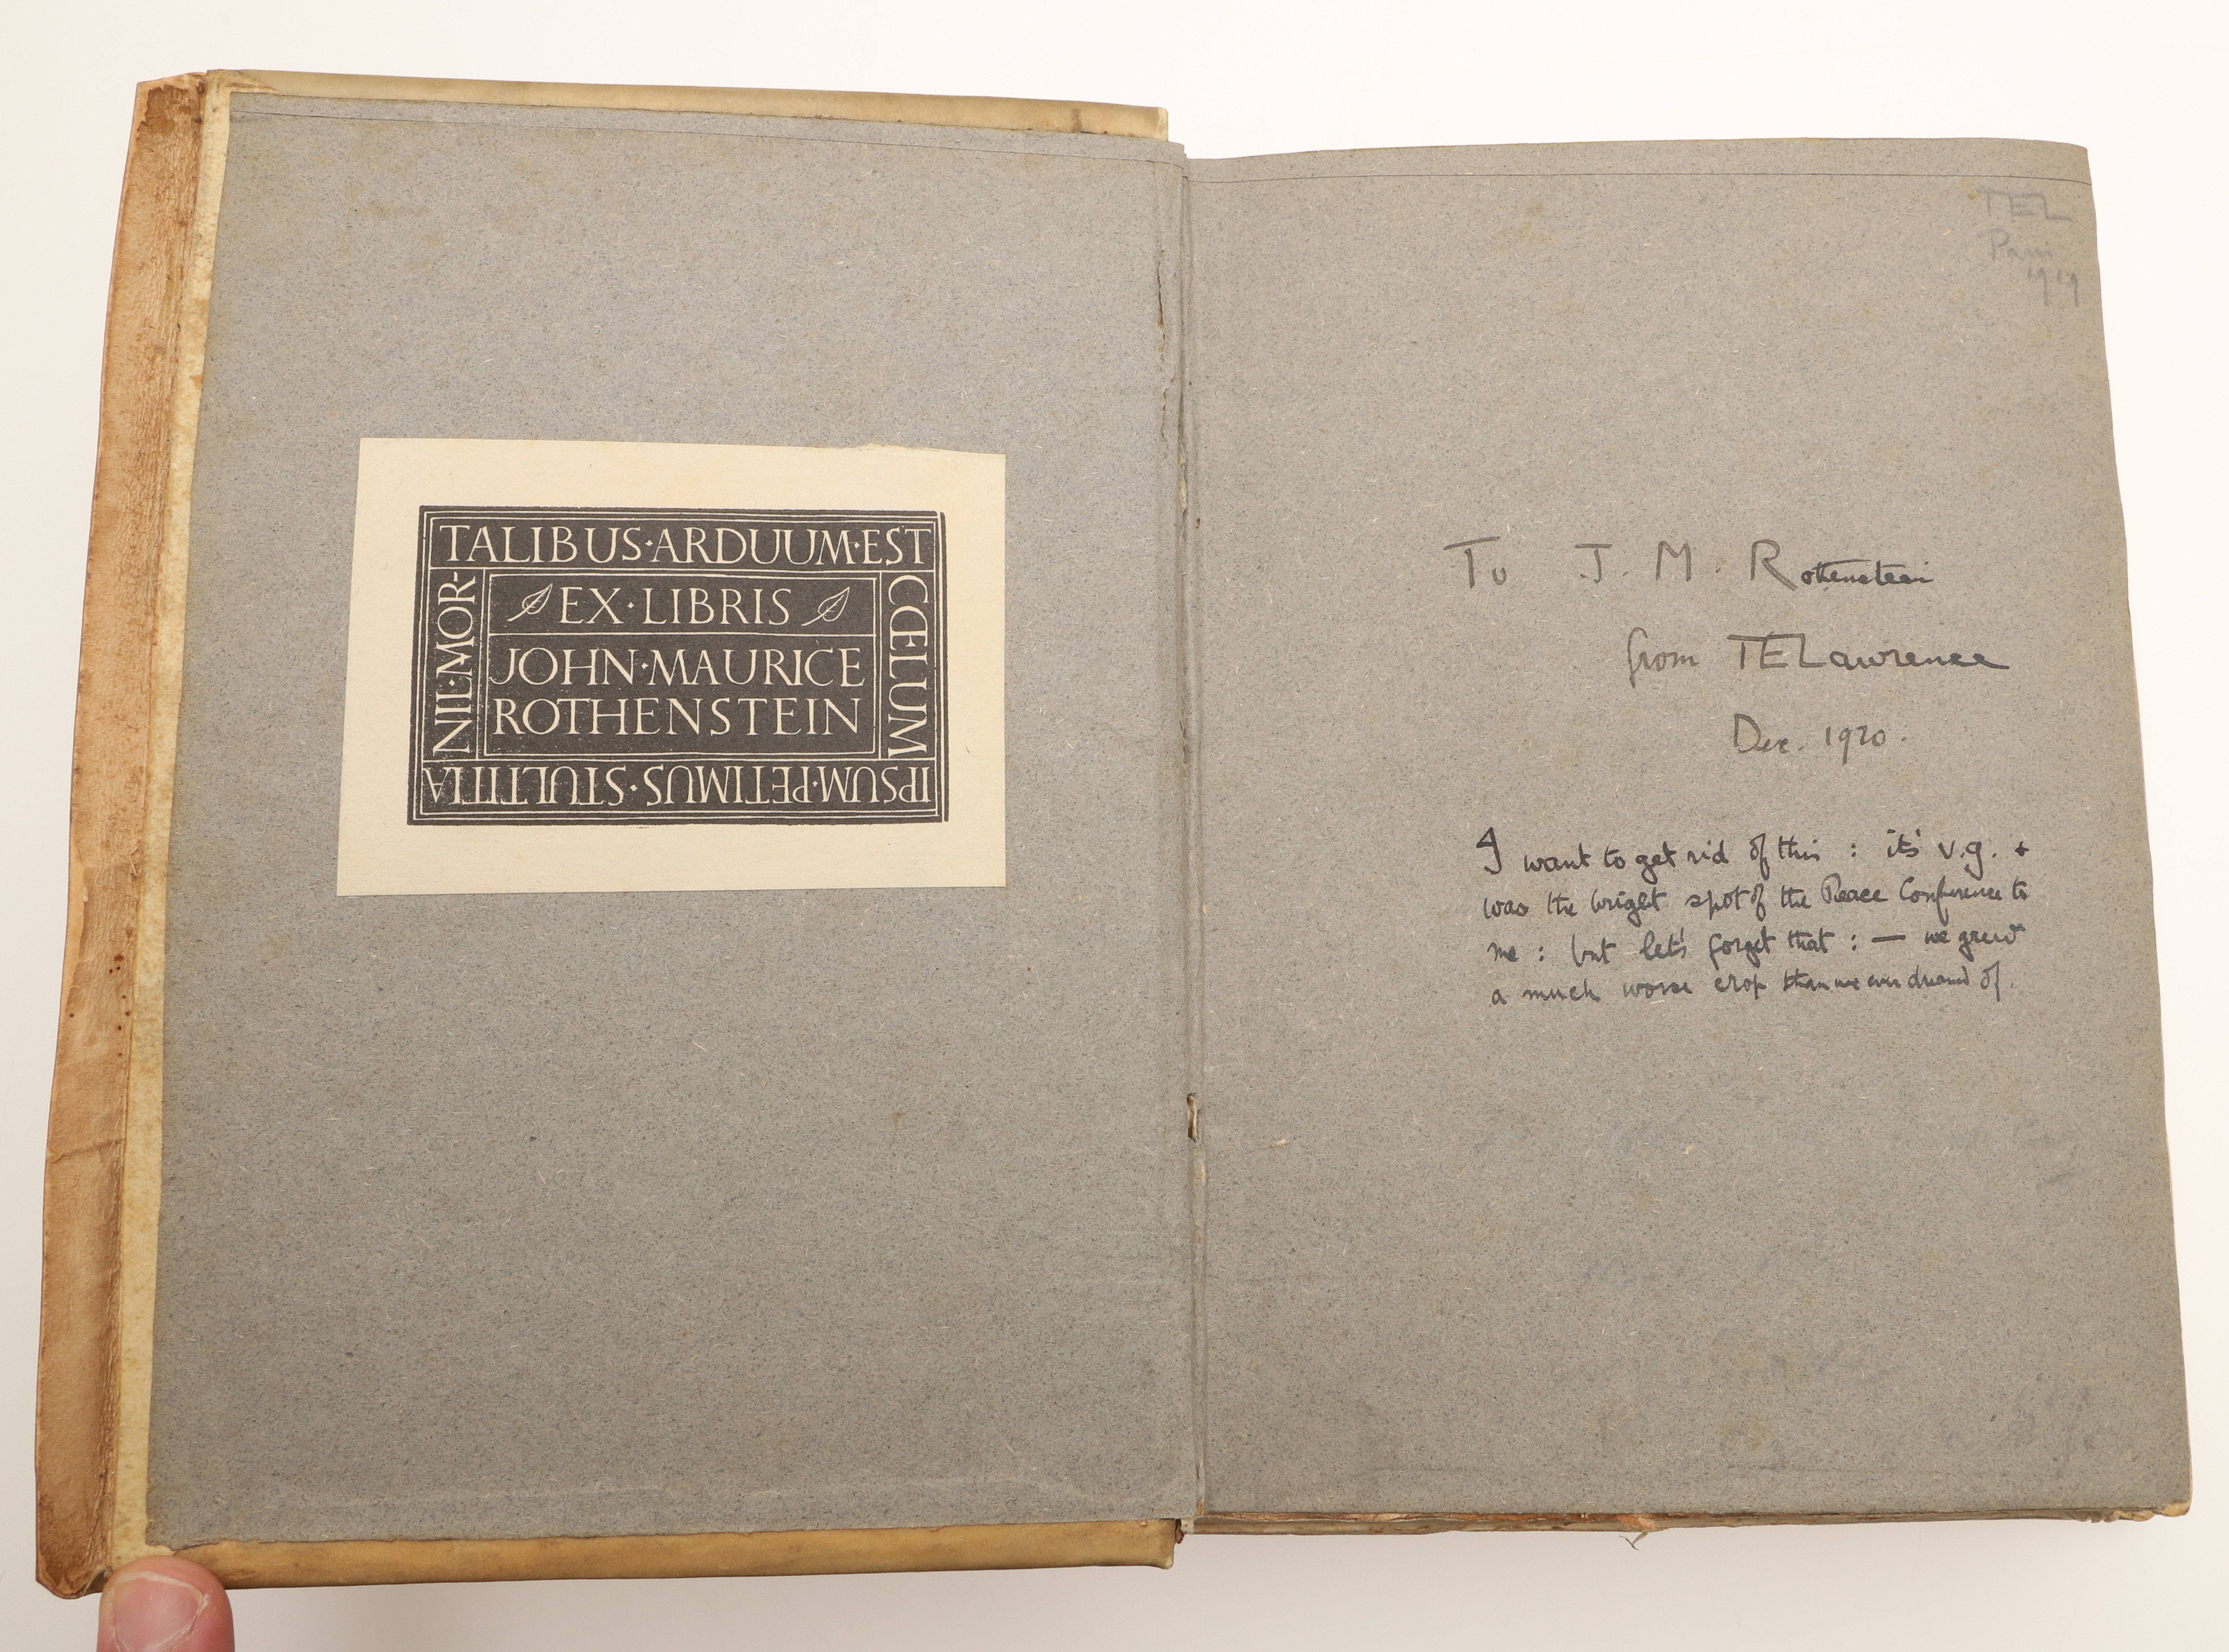 TALIBUS·ARDUUM·EST
CŒLUM
IPSUM·PETIMUS·STULTITIA
NIL·MOR-
EX·LIBRIS
JOHN·MAURICE
ROTHENSTEIN
TEL
Paris
1919
To J. M. Rothenstein
from TELawrence
Dec. 1920.
I want to get rid of this : it's v.g. +
was the bright spot of the Peace Conference to
me : but let's forget that : — we grew
a much worse crop than we ever dreamed of.